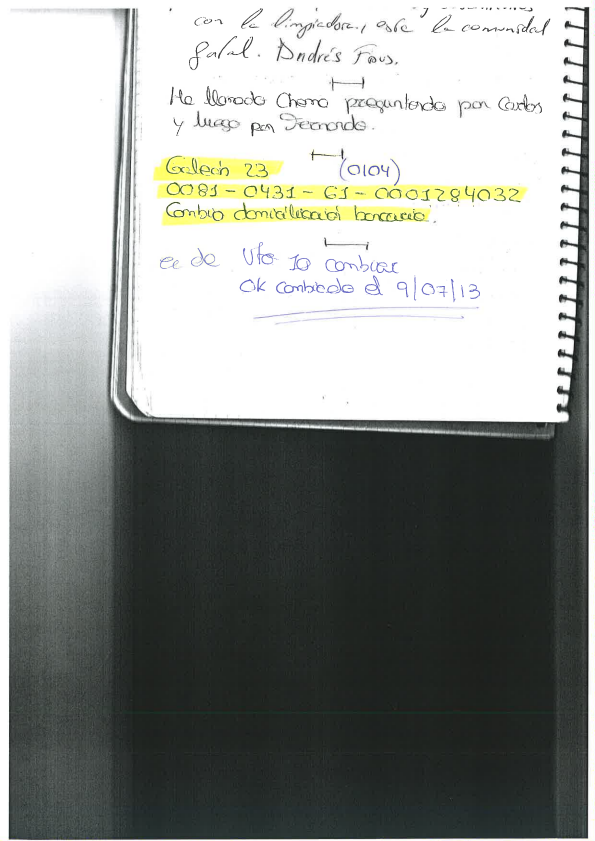 con la limpiadora, este la comunidad
Ha llamado Chema preguntando por Carlos
y luego por Fernando.
Galeón 23 (0104)
0081-0431-61-0001284032
Cambio domiciliación bancaria.
cc de Uta 10 cambiar
OK cambiado el 9/07/13